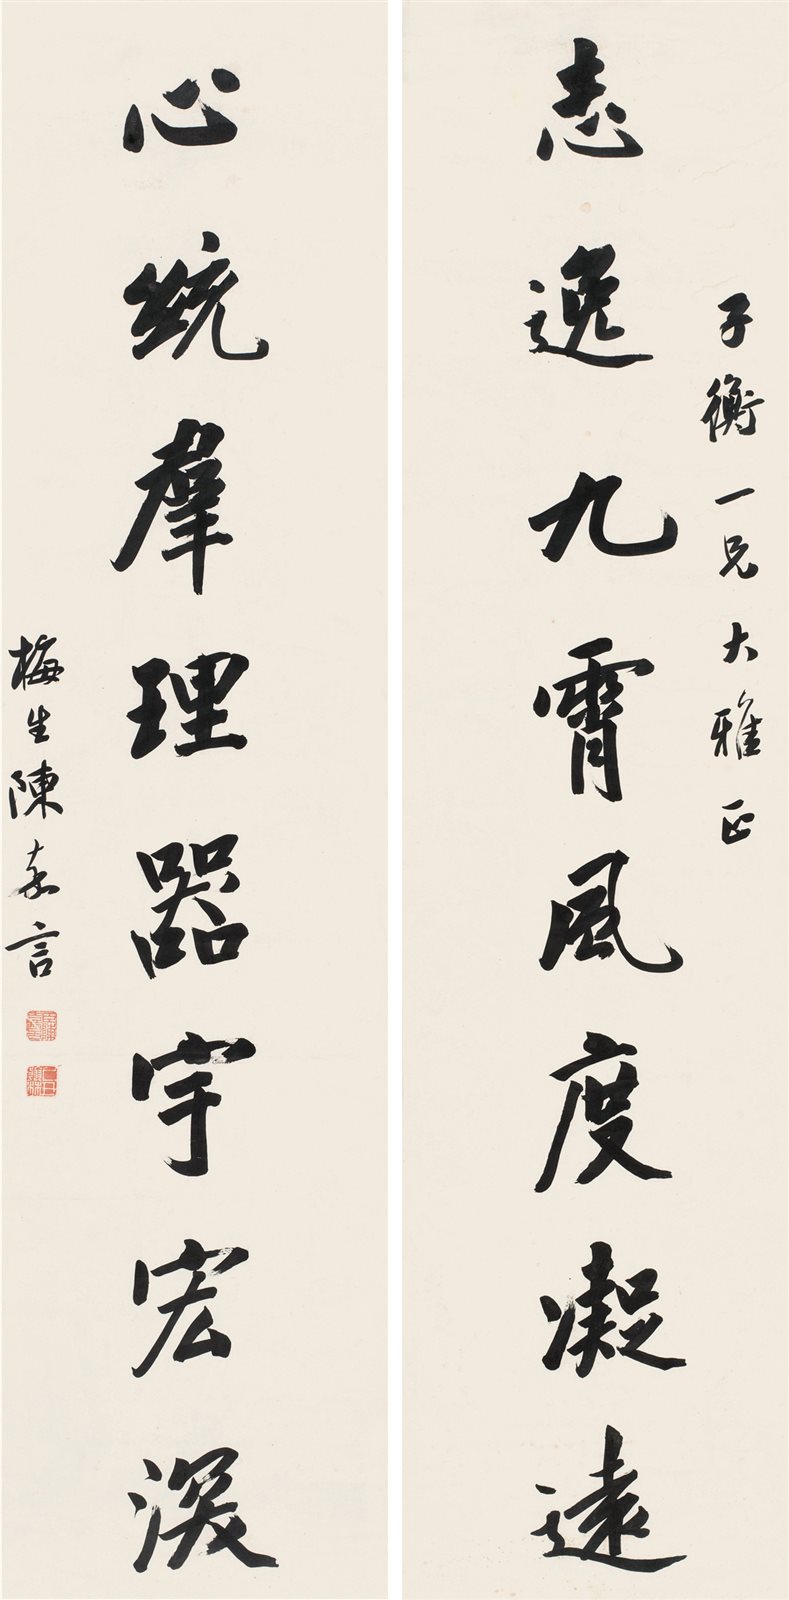 子衡一兄大雅正
志逸九霄風度凝遠
心統羣理器宇宏深
梅生陳嘉言